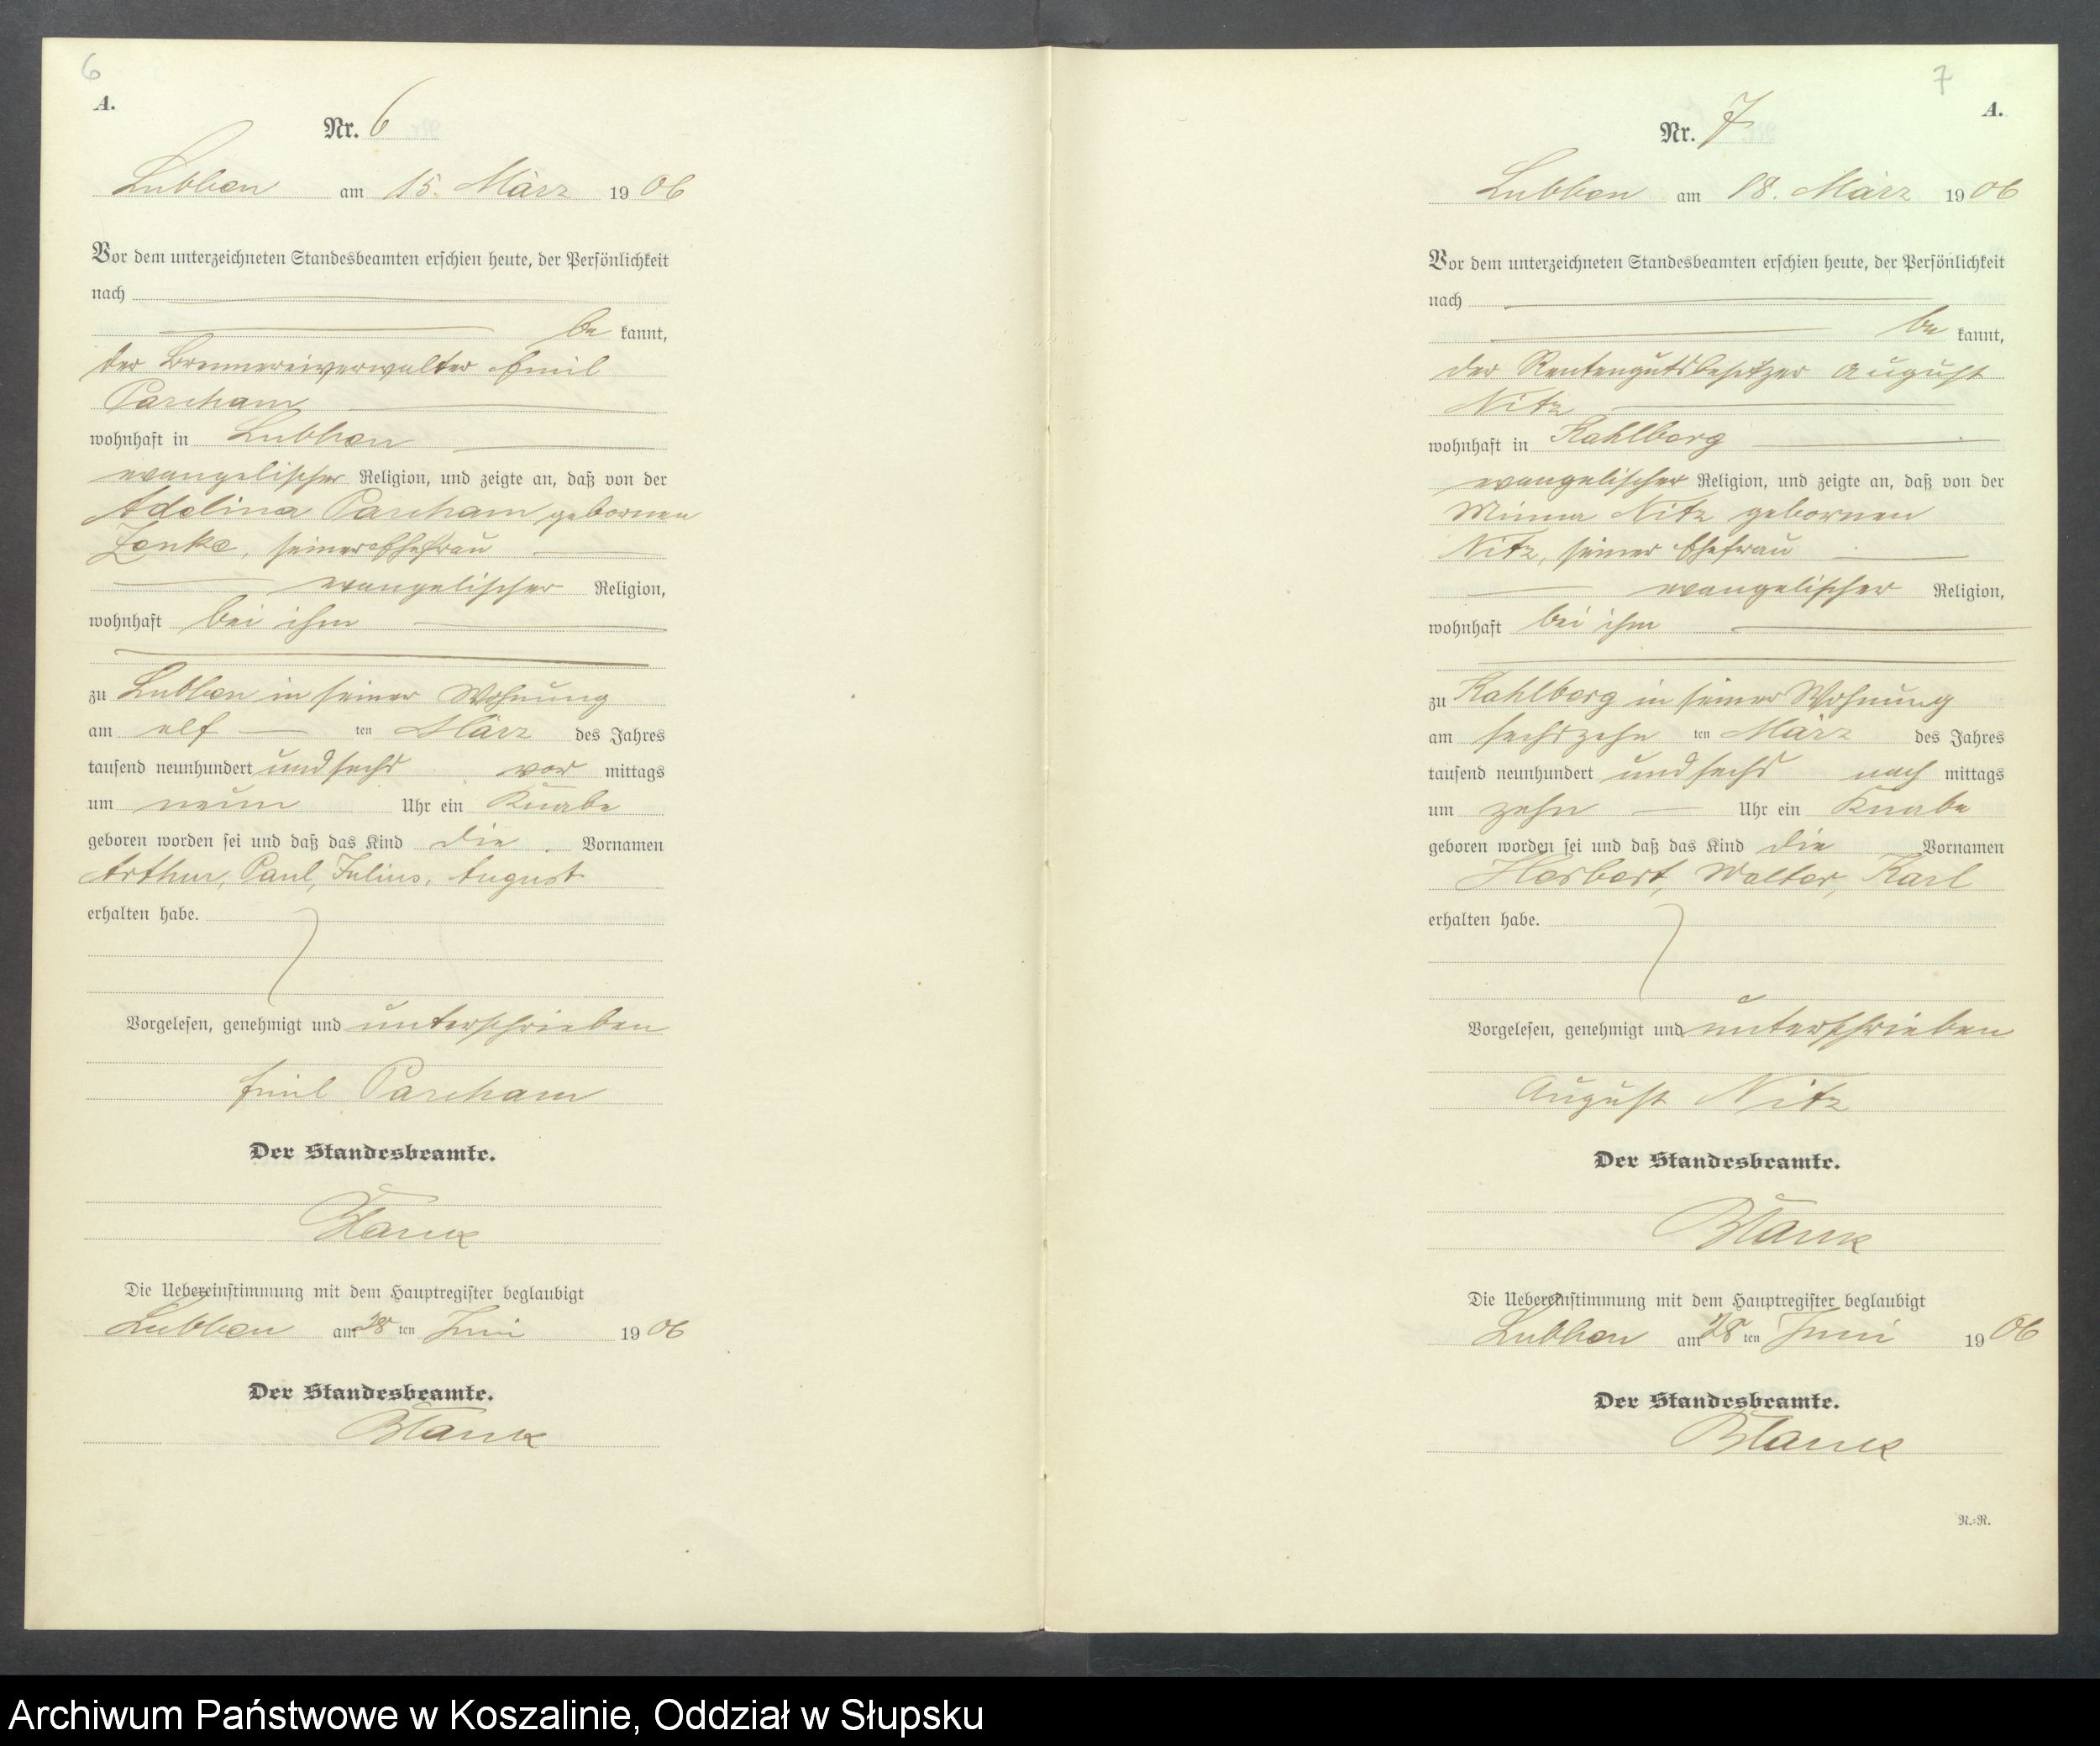 6
A.
Nr. 6
Lubben am 15. März 1906
Vor dem unterzeichneten Standesbeamten erschien heute, der Persönlichkeit
nach
be kannt,
der Brennereiverwalter Emil
Parcham
wohnhaft in Lubben
evangelischer Religion, und zeigte an, daß von der
Adeline Parcham gebornen
Zenke, seiner Ehefrau
evangelischer Religion,
wohnhaft bei ihm
zu Lubben in seiner Wohnung
am elf ten März des Jahres
tausend neunhundert und sechs vor mittags
um neun Uhr ein Knabe
geboren worden sei und daß das Kind die Vornamen
Arthur, Paul, Julius, August
erhalten habe.
Vorgelesen, genehmigt und unterschrieben
Emil Parcham
Der Standesbeamte.
Blank
Die Uebereinstimmung mit dem Hauptregister beglaubigt
Lubben am 28 ten Juni 1906
Der Standesbeamte.
Blank
7
A.
Nr. 7
Lubben am 18. März 1906
Vor dem unterzeichneten Standesbeamten erschien heute, der Persönlichkeit
nach
be kannt,
der Rentengutsbesitzer August
Nitz
wohnhaft in Kahlberg
evangelischer Religion, und zeigte an, daß von der
Minna Nitz gebornen
Nitz, seiner Ehefrau
evangelischer Religion,
wohnhaft bei ihm
zu Kahlberg in seiner Wohnung
am sechszehn ten März des Jahres
tausend neunhundert und sechs nach mittags
um zehn Uhr ein Knabe
geboren worden sei und daß das Kind die Vornamen
Herbert, Walter, Karl
erhalten habe.
Vorgelesen, genehmigt und unterschrieben
August Nitz
Der Standesbeamte.
Blank
Die Uebereinstimmung mit dem Hauptregister beglaubigt
Lubben am 28 ten Juni 1906
Der Standesbeamte.
Blank
N.-R.
Archiwum Państwowe w Koszalinie, Oddział w Słupsku